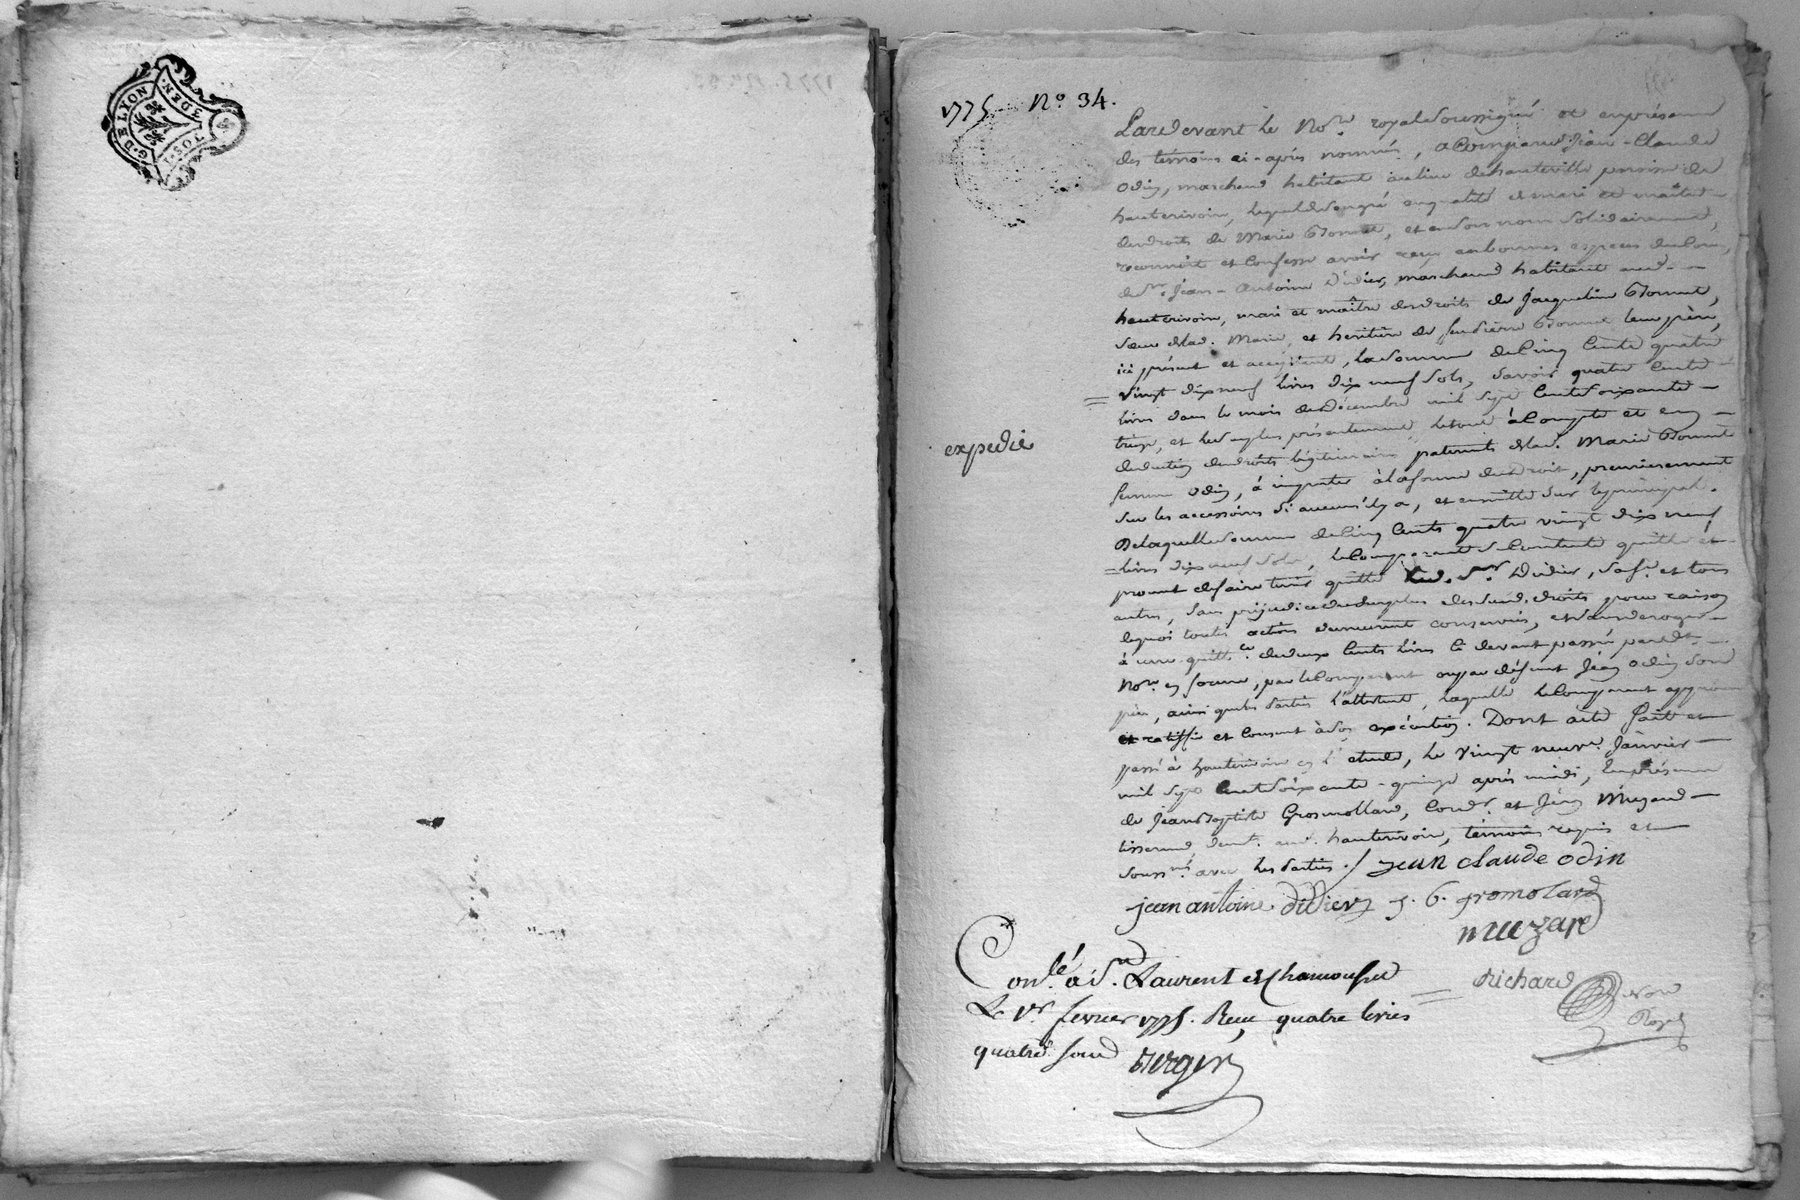 G. DE LYON
1. SOL 3 DEN.
1775 N.o 34.
Pardevant le No.re royal soussigné et en présence
des témoins ci-après nommés, a comparu Jean-Claude
Odin, marchand habitant au lieu de hauteville paroisse de
hauterivoire, lequel de son gré en qualité de mari et maitre
des droits de Marie Bonnet, et en son nom solidairement,
reconnoit et confesse avoir reçu en bonnes especes de cours,
de Sr. Jean-Antoine Didier, marchand habitant aud.
hauterivoire, mari et maître des droits de Jacqueline Bonnet,
soeur de lad. Marie, et heritière de feu Pierre Bonnet leur père,
ici présent et acceptant, la somme de Cinq Cents quatre
vingt dix neuf livres dix neuf sols, Savoir quatre Cents
livres dans le mois de décembre mil sept Cent soixante
treize, et le surplus présentement, le tout à Compte et en
deduction des droits légitimaires paternels de lad. Marie Bonnet
femme Odin, à imputer à la forme du droit, premierement
sur les accessoires si aucuns il y a, et ensuite sur le principal.
De laquelle somme de Cinq Cents quatre vingt dix neuf
livres dix neuf sols, le Comparant se Contente quitte et
promet de faire tenir quitte led. Sr. Didier, sa fe. et tous
autres, sans préjudice du surplus de sesd. droits pour raison
de quoi toutes actions demeurent conservées, et sans deroger
à une quittce. de deux Cents livres ci devant passée pardt.
No.re en forme, par le Comparant ou par défunt Jean Odin son
père, ainsi que les parties l'attestent, laquelle le Comparant approuve
et ratiffie et Consent à son exécution. Dont acte fait et
passé à hauterivoire en l'étude, le vingt neuve. Janvier
mil sept Cent soixante-quinze après midi, En présence
de Jean Baptiste Grosmollard, Cordr. et Jean Muzard
tisserand, demt. aud. hauterivoire, témoins requis et
soussnés. avec les Parties. / jean claude odin
expedié
jean antoine didier J. B. gromolard
muzard
Con.lé à St. Laurent de Chamousset
Le 1er. fevrier 1775. Reçu quatre livres
quatre sous Berger
Richard Nore
Royal